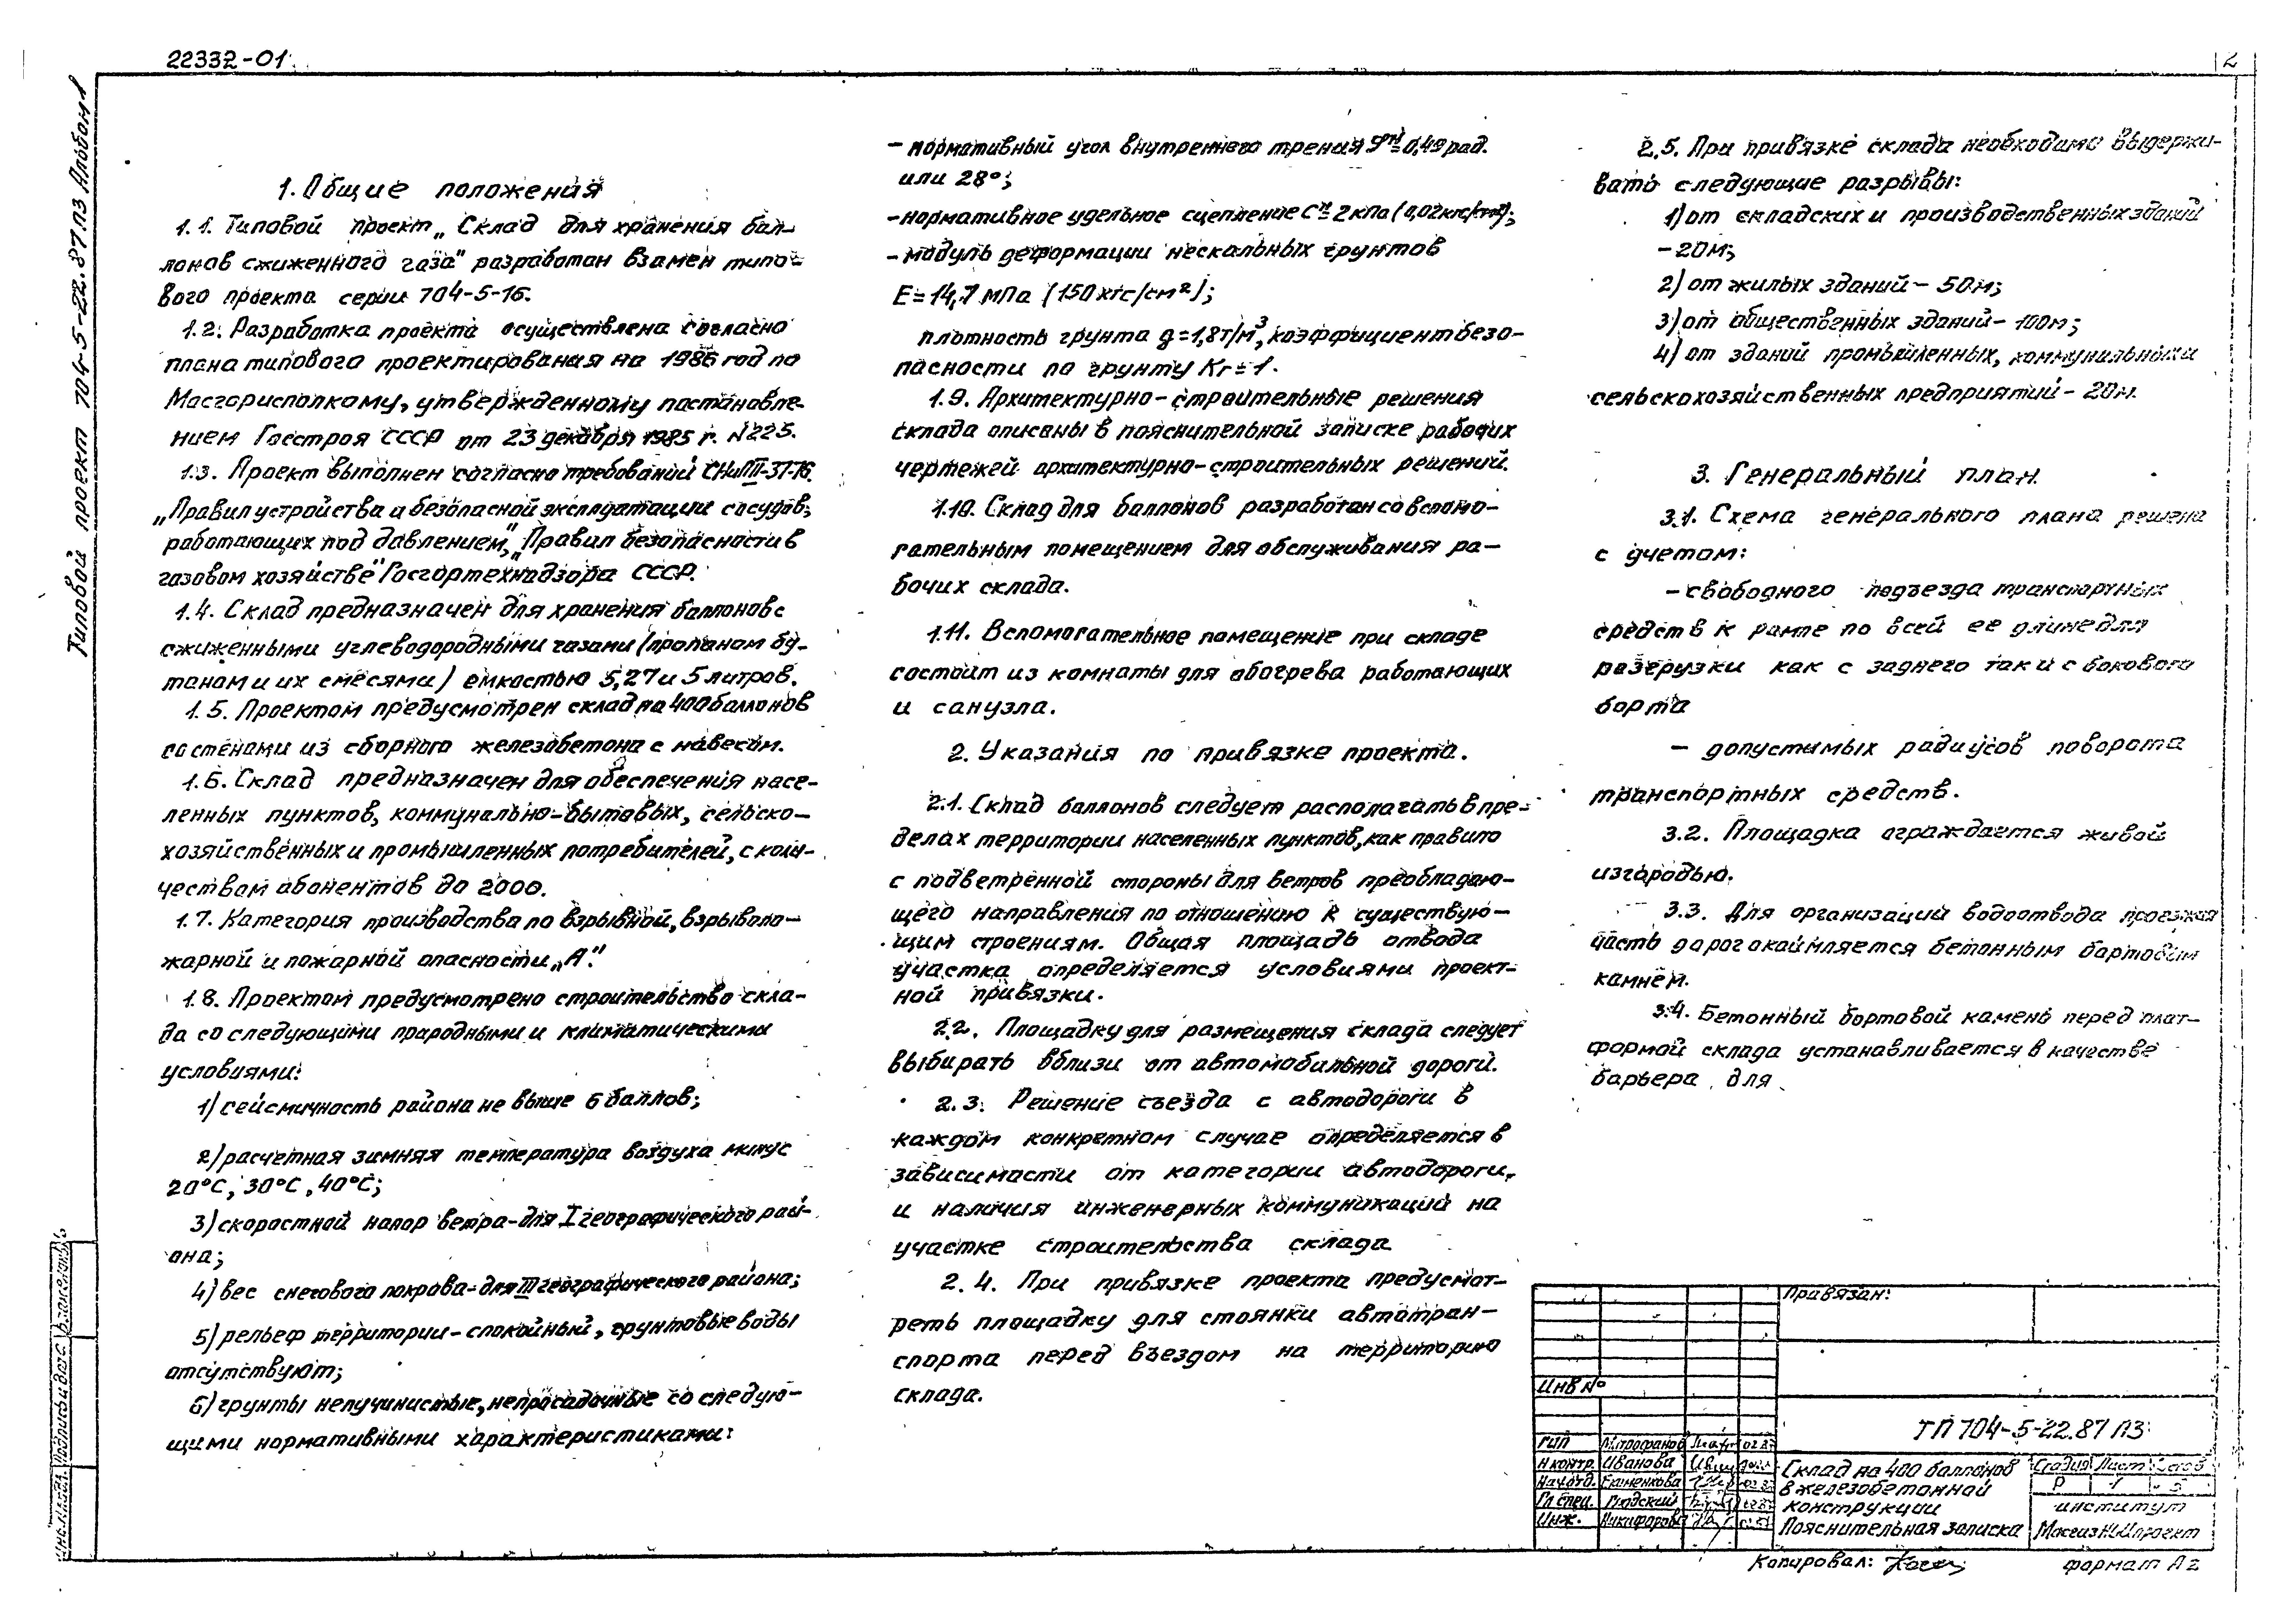 22332-01
2
Типовой проект 704-5-22.87 ПЗ Альбом 1
1. Общие положения
1.1. Типовой проект „Склад для хранения бал-
лонов сжиженного газа" разработан взамен типо-
вого проекта серии 704-5-16.
1.2. Разработка проекта осуществлена согласно
плана типового проектирования на 1986 год по
Мосгорисполкому, утвержденному постановле-
нием Госстроя СССР от 23 декабря 1985 г. N 225.
1.3. Проект выполнен согласно требований СНиП II-37-76.
„Правил устройства и безопасной эксплуатации сосудов,
работающих под давлением", „Правил безопасности в
газовом хозяйстве" Госгортехнадзора СССР.
1.4. Склад предназначен для хранения баллонов с
сжиженными углеводородными газами (пропаном бу-
таном и их смесями) емкостью 5, 27 и 5 литров.
1.5. Проектом предусмотрен склад на 400 баллонов
со стенами из сборного железобетона с навесом.
1.6. Склад предназначен для обеспечения насе-
ленных пунктов, коммунально-бытовых, сельско-
хозяйственных и промышленных потребителей, с коли-
чеством абонентов до 2000.
1.7. Категория производства по взрывной, взрывопо-
жарной и пожарной опасности „А".
1.8. Проектом предусмотрено строительство скла-
да со следующими природными и климатическими
условиями:
1) сейсмичность района не выше 6 баллов;
2) расчетная зимняя температура воздуха минус
20°С, 30°С, 40°С;
3) скоростной напор ветра - для I географического рай-
она;
4) вес снегового покрова - для III географического района;
5) рельеф территории - спокойный, грунтовые воды
отсутствуют;
6) грунты непучинистые, непросадочные со следую-
щими нормативными характеристиками:
- нормативный угол внутреннего трения φᴴ = 0,49 рад.
или 28°;
- нормативное удельное сцепление Сᴴ = 2 кПа (0,02 кгс/см²);
- модуль деформации нескальных грунтов
Е = 14,7 МПа (150 кгс/см²);
плотность грунта g = 1,8 т/м³, коэффициент безо-
пасности по грунту Кг = 1.
1.9. Архитектурно-строительные решения
склада описаны в пояснительной записке рабочих
чертежей архитектурно-строительных решений.
1.10. Склад для баллонов разработан со вспомо-
гательным помещением для обслуживания ра-
бочих склада.
1.11. Вспомогательное помещение при складе
состоит из комнаты для обогрева работающих
и санузла.
2. Указания по привязке проекта.
2.1. Склад баллонов следует располагать в пре-
делах территории населенных пунктов, как правило
с подветренной стороны для ветров преобладаю-
щего направления по отношению к существую-
щим строениям. Общая площадь отвода
участка определяется условиями проект-
ной привязки.
2.2. Площадку для размещения склада следует
выбирать вблизи от автомобильной дороги.
2.3. Решение съезда с автодороги в
каждом конкретном случае определяется в
зависимости от категории автодороги,
и наличия инженерных коммуникаций на
участке строительства склада
2.4. При привязке проекта предусмот-
реть площадку для стоянки автотран-
спорта перед въездом на территорию
склада.
2.5. При привязке склада необходимо выдержи-
вать следующие разрывы:
1) от складских и производственных зданий
- 20м;
2) от жилых зданий - 50м;
3) от общественных зданий - 100м;
4) от зданий промышленных, коммунальных
сельскохозяйственных предприятий - 20м.
3. Генеральный план.
3.1. Схема генерального плана решена
с учетом:
- свободного подъезда транспортных
средств к рампе по всей ее длине для
разгрузки как с заднего так и с бокового
борта
- допустимых радиусов поворота
транспортных средств.
3.2. Площадка ограждается живой
изгородью.
3.3. Для организации водоотвода проезжая
часть дорог окаймляется бетонным бортовым
камнем.
3.4. Бетонный бортовой камень перед плат-
формой склада устанавливается в качестве
барьера для
Привязан:
Инв №
ТП 704-5-22.87 ПЗ
ГИП Митрофанов 02.87
Н.контр. Иванова
Нач.отд. Ефименкова
Гл.спец.
Инж. Никифорова
Склад на 400 баллонов
в железобетонной
конструкции
Пояснительная записка
Стадия Лист Листов
Р 1
институт
МосгазНИИпроект
Инв.№подл. Подпись и дата Взам.инв.№
Копировал:
формат А2